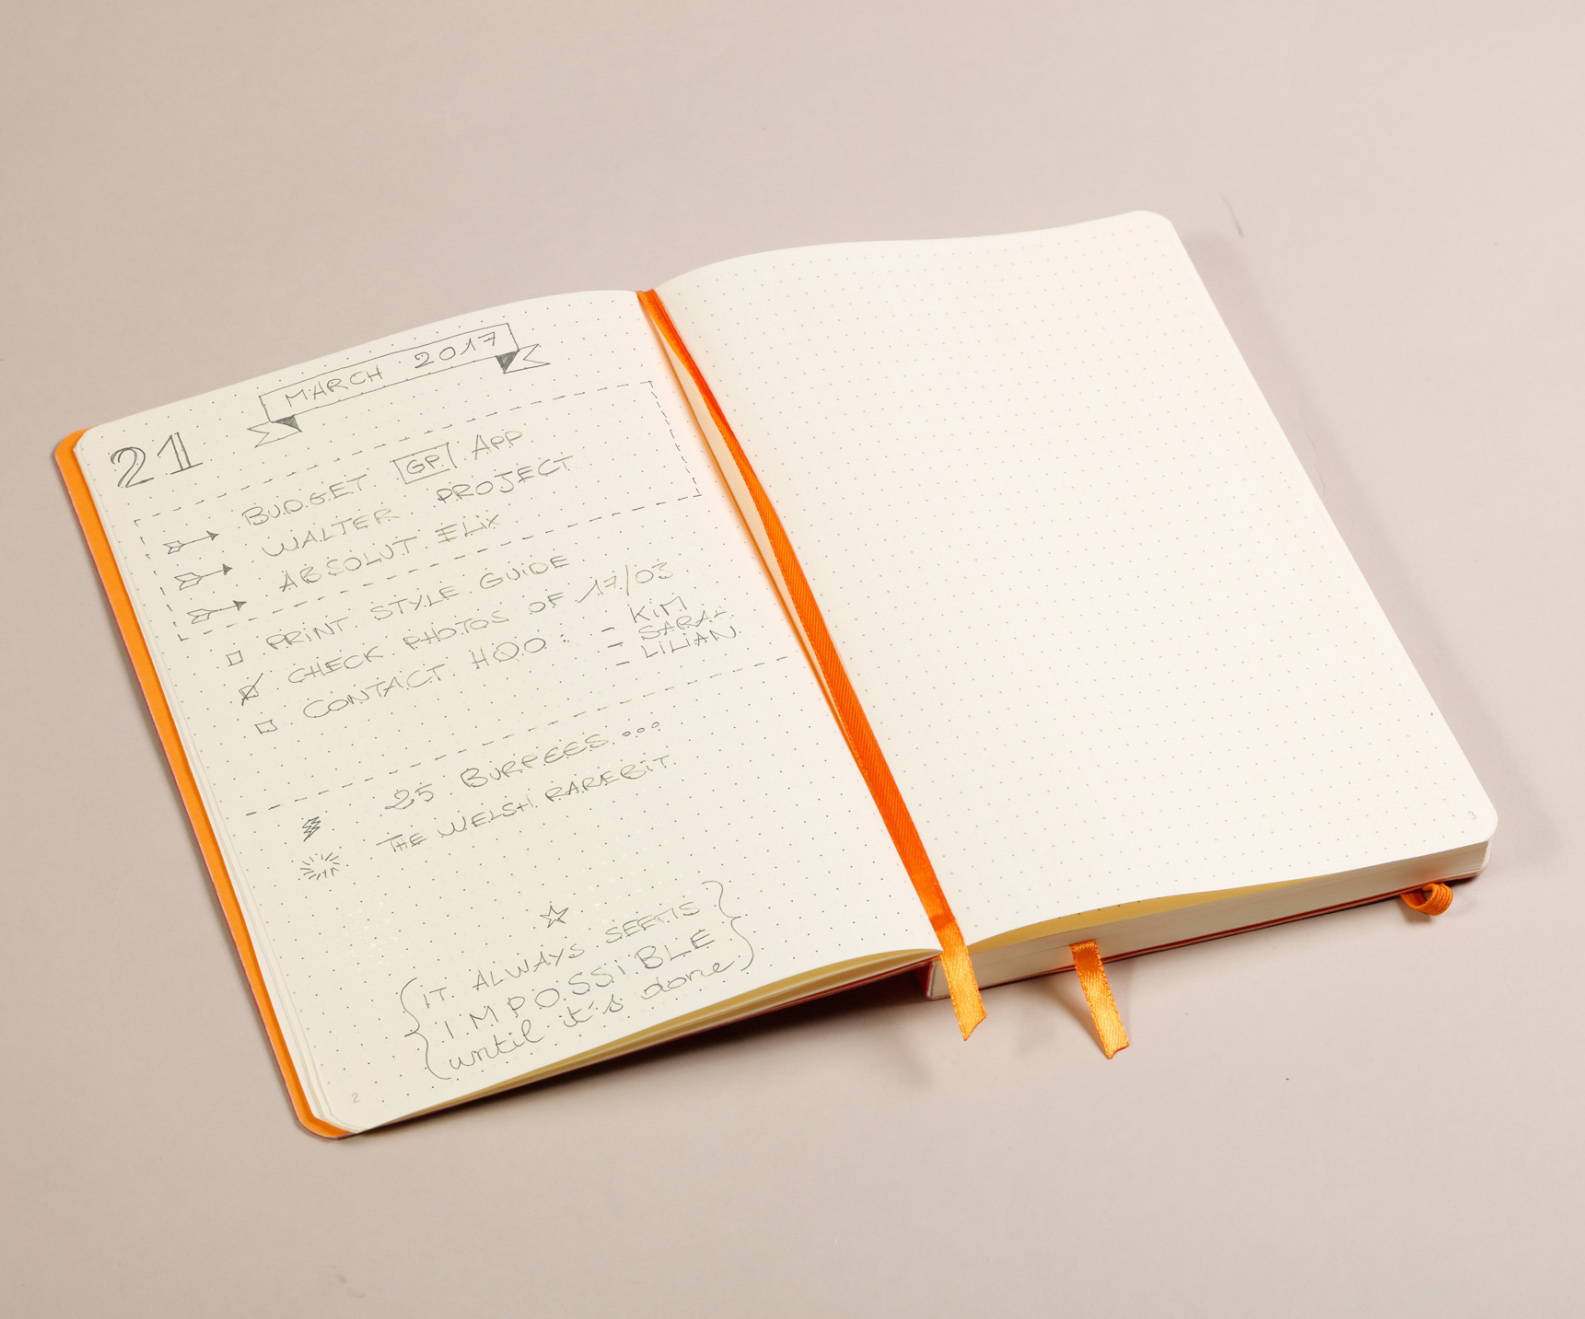 MARCH 2017
21
BUDGET GP APP
WALTER PROJECT
ABSOLUT ELIX
PRINT STYLE GUIDE
CHECK PHOTOS OF 17/03
CONTACT HQO : - KIM
- SARAH
- LILIAN
25 BURPEES...
THE WELSH RAREBIT.
{IT ALWAYS SEEMS
IMPOSSIBLE
until it's done}
2
3